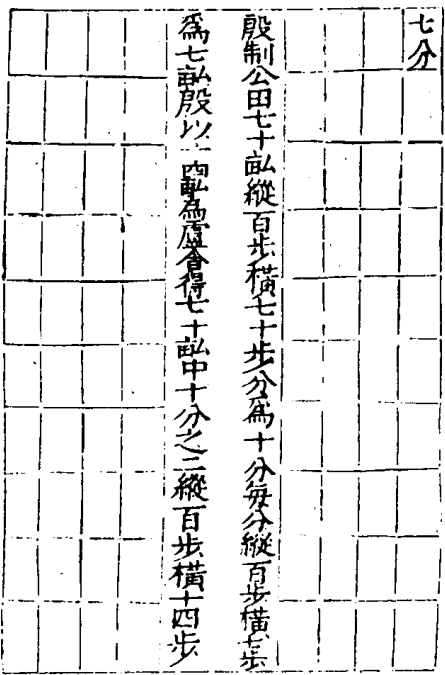 七分
殷制公田七十畝縱百步橫七十步分爲十分每分縱百步橫七步
爲七畝殷以十四畝爲廬舍得七十畝中十分之二縱百步橫十四步